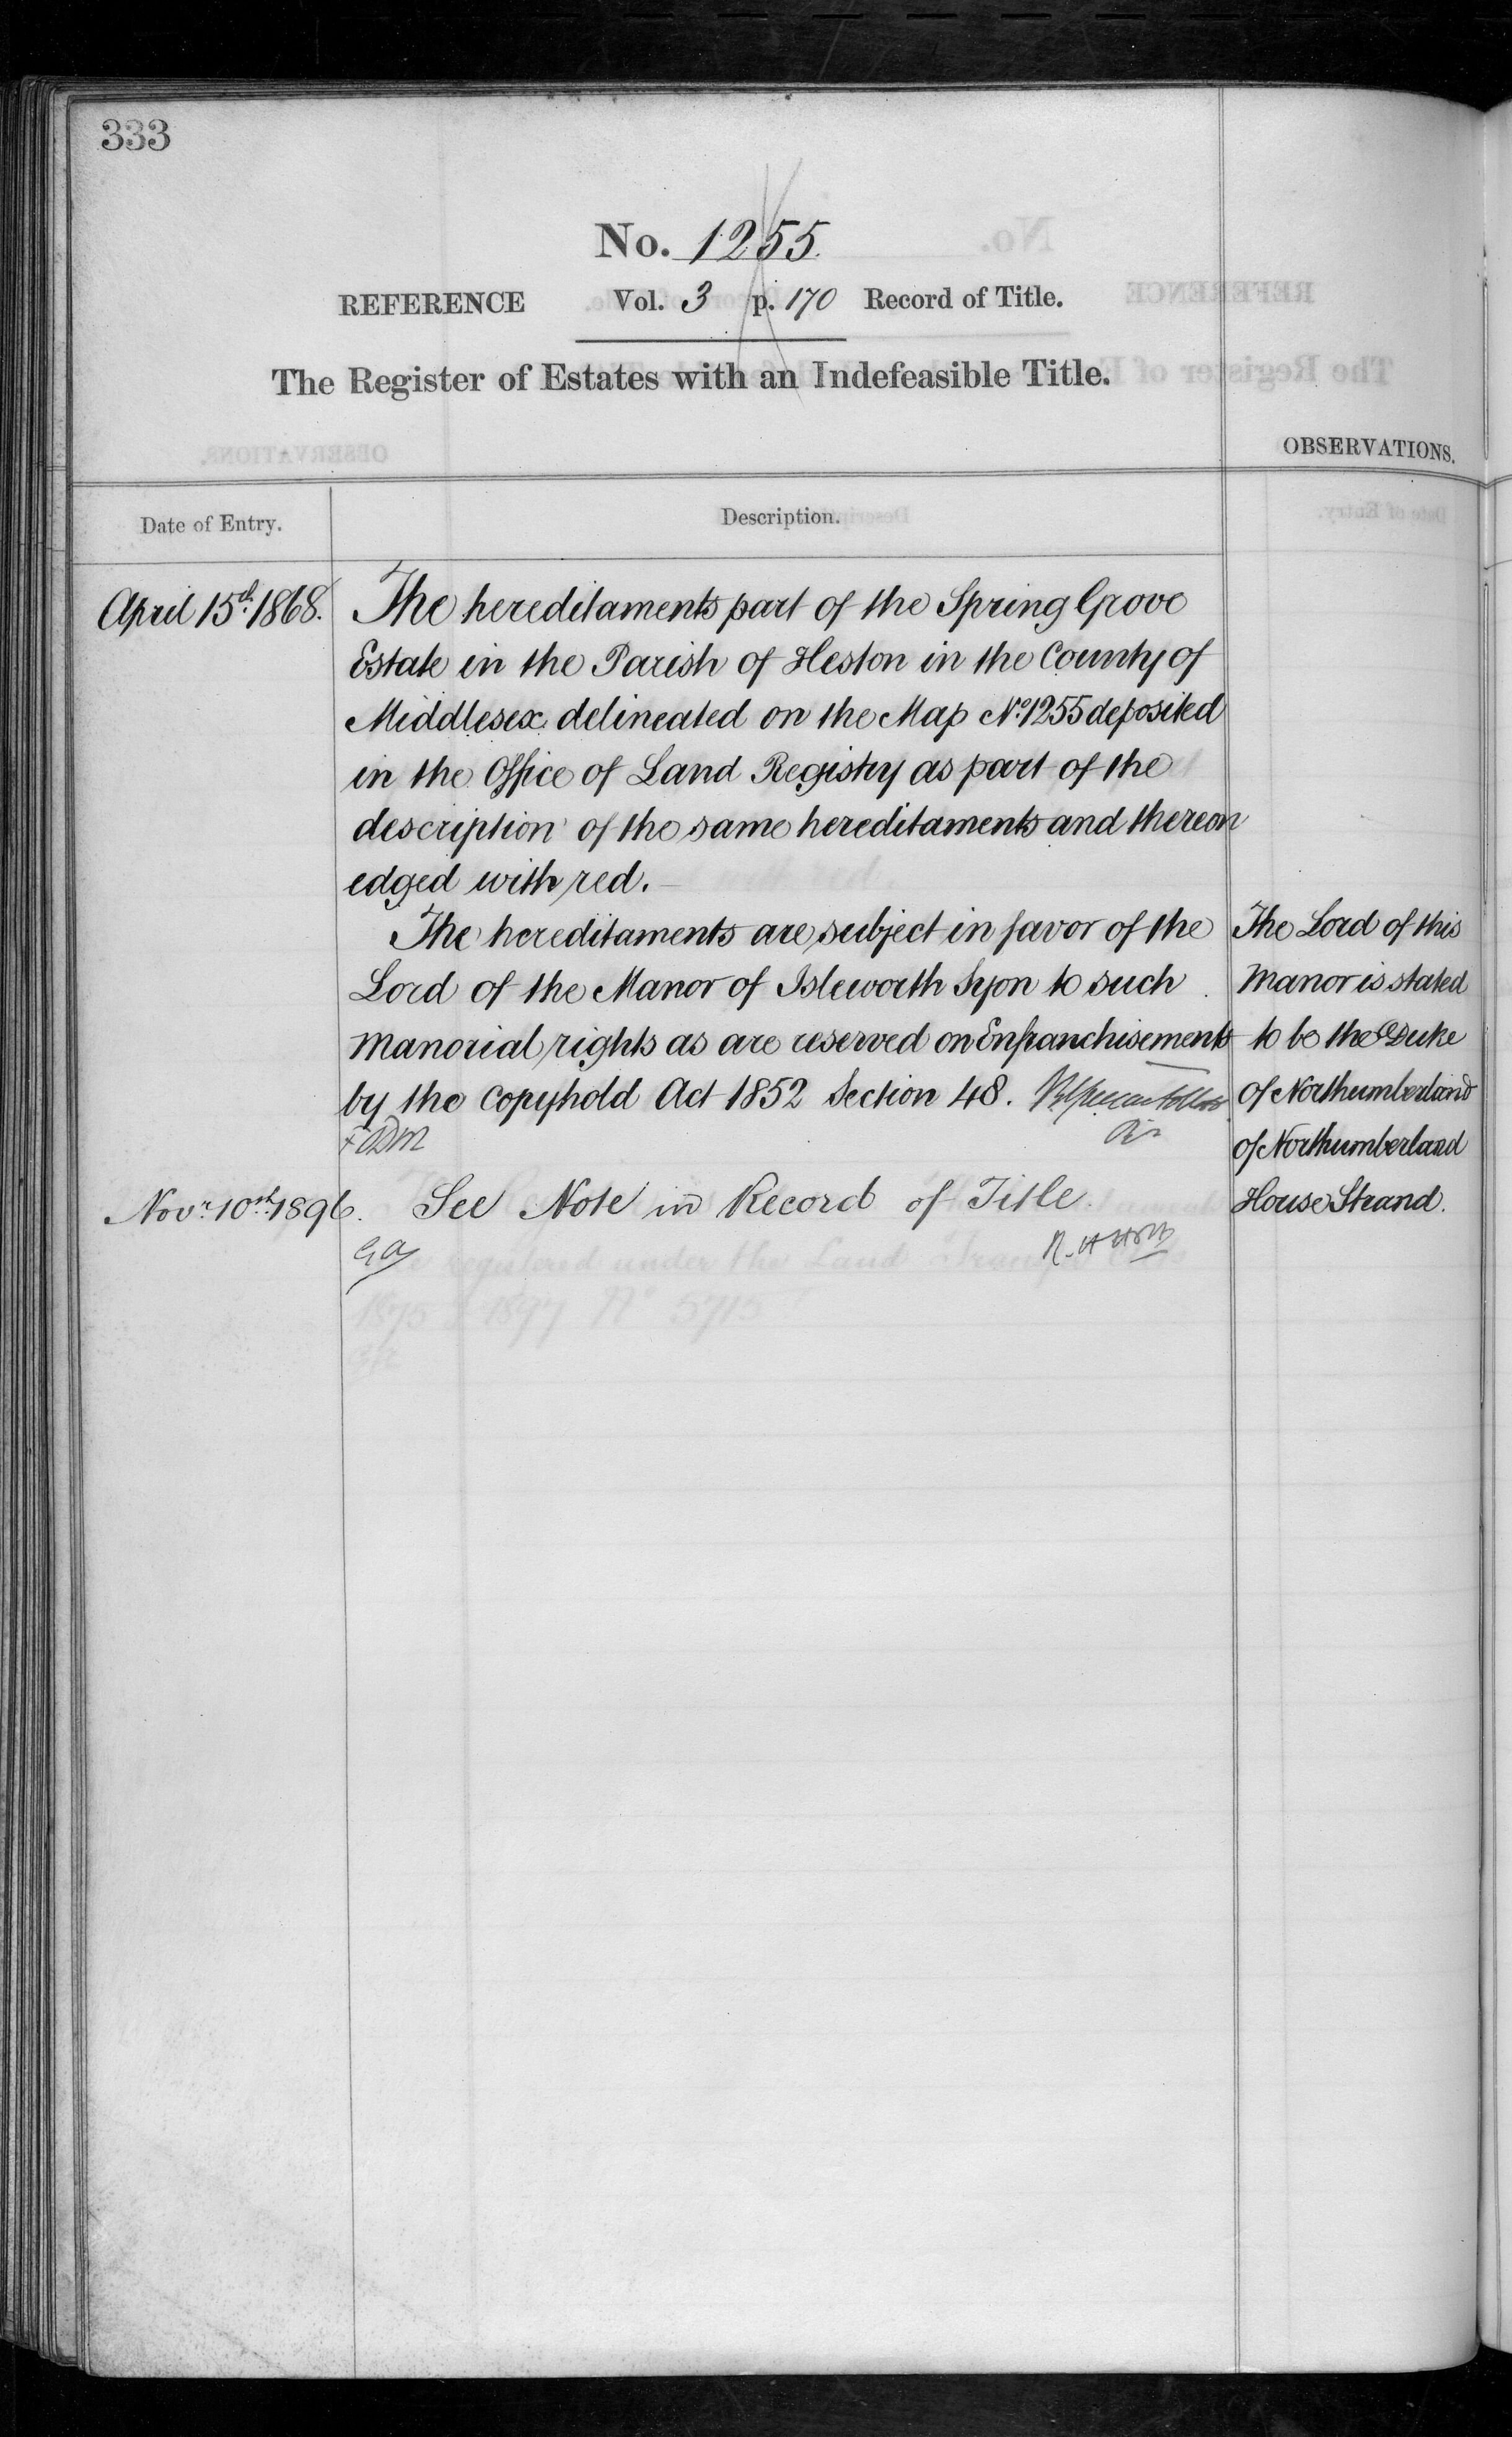 333
No. 1255.
REFERENCE Vol. 3 p. 170 Record of Title.
The Register of Estates with an Indefeasible Title.
OBSERVATIONS.
Date of Entry.
Description.
April 15th. 1868.
The hereditaments part of the Spring Grove
Estate in the Parish of Heston in the County of
Middlesex delineated on the Map No. 1255 deposited
in the Office of Land Registry as part of the
description of the same hereditaments and thereon
edged with red.
The hereditaments are subject in favor of the
Lord of the Manor of Isleworth Syon to such
manorial rights as are reserved on Enfranchisements
by the Copyhold Act 1852 Section 48.
The Lord of this
Manor is stated
to be the Duke
of Northumberland
of Northumberland
House Strand.
Novr. 10th 1896.
See Note in Record of Title.